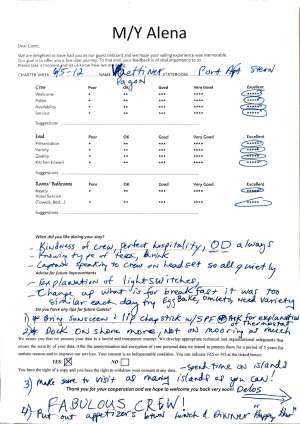 M/Y Alena
Dear Guest,
We are delighted to have had you as our guest onboard and we hope your sailing experience was memorable.
Our goal is to offer you a fun-dear journey. To that end, your feedback is of vital importance to us.
Please take a moment and let us know how we
CHARTER WEEK: 9/5-12 NAME STATEROOM Port Stern
Crew Poor OK Good Very Good Excellent
Welcome * ** *** **** *****
Polite * ** *** **** *****
Availability * ** *** **** *****
Service * ** *** **** *****
Suggestions
Food Poor OK Good Very Good Excellent
Presentation * ** *** **** *****
Variety * ** *** **** *****
Quality * ** *** **** *****
Kitchen * ** *** **** *****
Suggestions
Rooms/ Bathrooms Poor OK Good Very Good Excellent
Ready * ** *** **** *****
Hotel Service * ** *** **** *****
(Towels, Bed...)
Suggestions
What did you like during your stay?
- Kindness of crew, perfect hospitality, always
- Knowing type of teas, drink
- Captain speaking to crew on headset so all quietly
Advice for future improvements
- Explanation of light switches,
- Change up what is for breakfast it was too
similar each day try Egg Bake, omlets, need Variety
Do you have any tips for future Guests?
1) * Bring Sunscreen + lip chapstick w/SPF * Ask for explanation
of thermostat
2) * Dock on shore more, not on mooring so much
We assure you that we process your data in a lawful and transparent manner. We develop appropriate technical and organizational safeguards that
ensure the security of your data. After the interpretation and encryption of your personal data we intend to process them for a period of 5 years for
certain reasons and to improve our services. Your consent is an indispensable condition. You can indicate YES or NO at the linked boxes:
YES NO
- spend time on islands
You have the right of a copy and you have the right to withdraw your consent at any time.
3) make sure to visit as many islands as you can!
Thank you for your cooperation and we hope to welcome you back very soon!
Delos
FABULOUS CREW!
4) Put out appetizers btwn lunch & Dinner "Happy Hour"